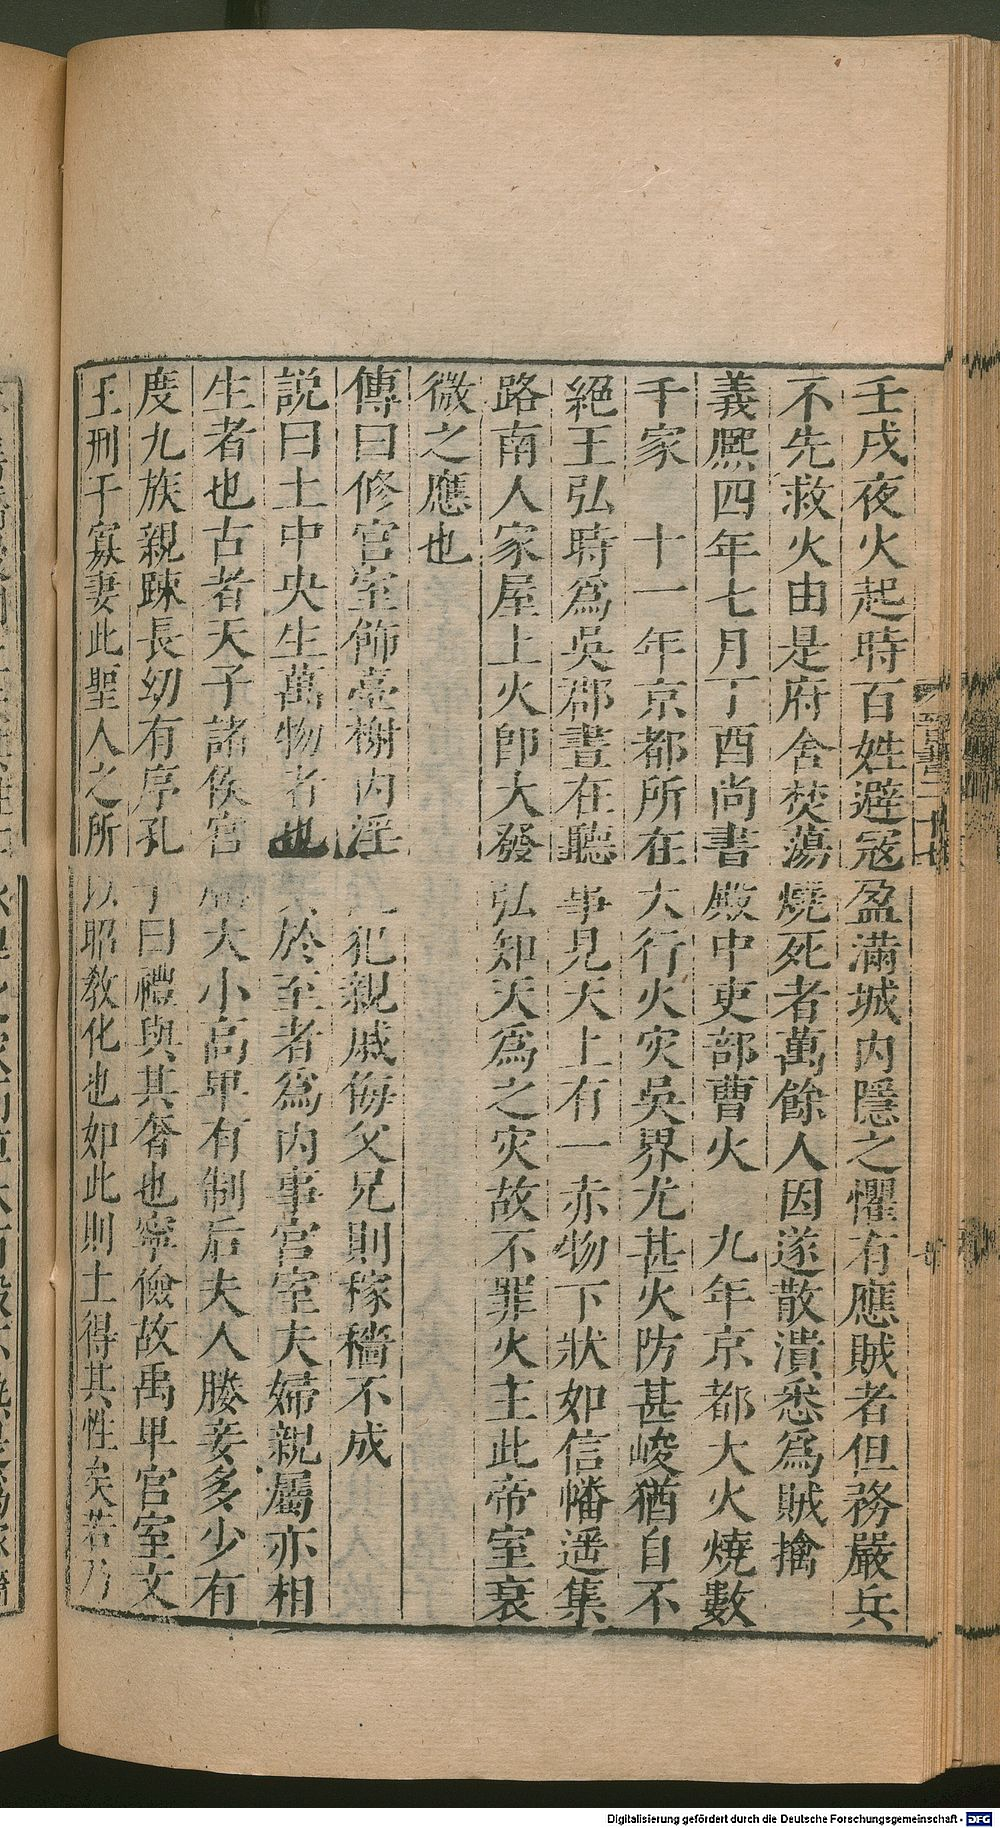 壬戌夜火起時百姓避寇盈滿城內隱之懼有應賊者但務嚴兵
不先救火由是府舍焚蕩燒死者萬餘人因遂散潰悉爲賊擒
義熈四年七月丁酉尚書殿中吏部曹火　九年京都大火燒數
千家　十一年京都所在大行火灾吳界尤甚火防甚峻猶自不
絕王弘時爲吳郡晝在聽事見天上有一赤物下狀如信幡遥集
路南人家屋上火卽大發弘知天爲之灾故不罪火主此帝室衰
微之應也
傳曰修宮室飾臺榭內淫犯親戚侮父兄則稼穡不成
說曰土中央生萬物者也於至者爲內事宮室夫婦親屬亦相
生者也古者天子諸侯宮大小高卑有制后夫人媵妾多少有
度九族親踈長幼有序孔子曰禮與其奢也寧儉故禹卑宮室文
王刑于寡妻此聖人之所以昭敎化也如此則土得其性矣若乃
晉書二十七
Digitalisierung gefördert durch die Deutsche Forschungsgemeinschaft - DFG